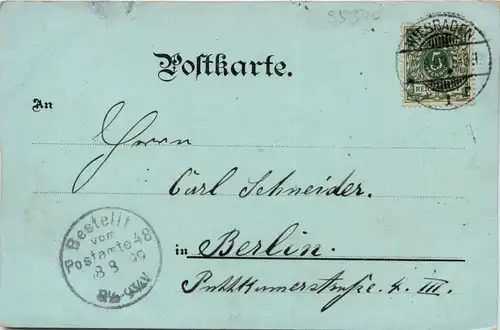 WIESBADEN
5
Postkarte.
An
Herrn
Carl Schneider.
in Berlin.
Puttkamerstraße. 4. III.
Bestellt
vom
Postamte 48
8 99